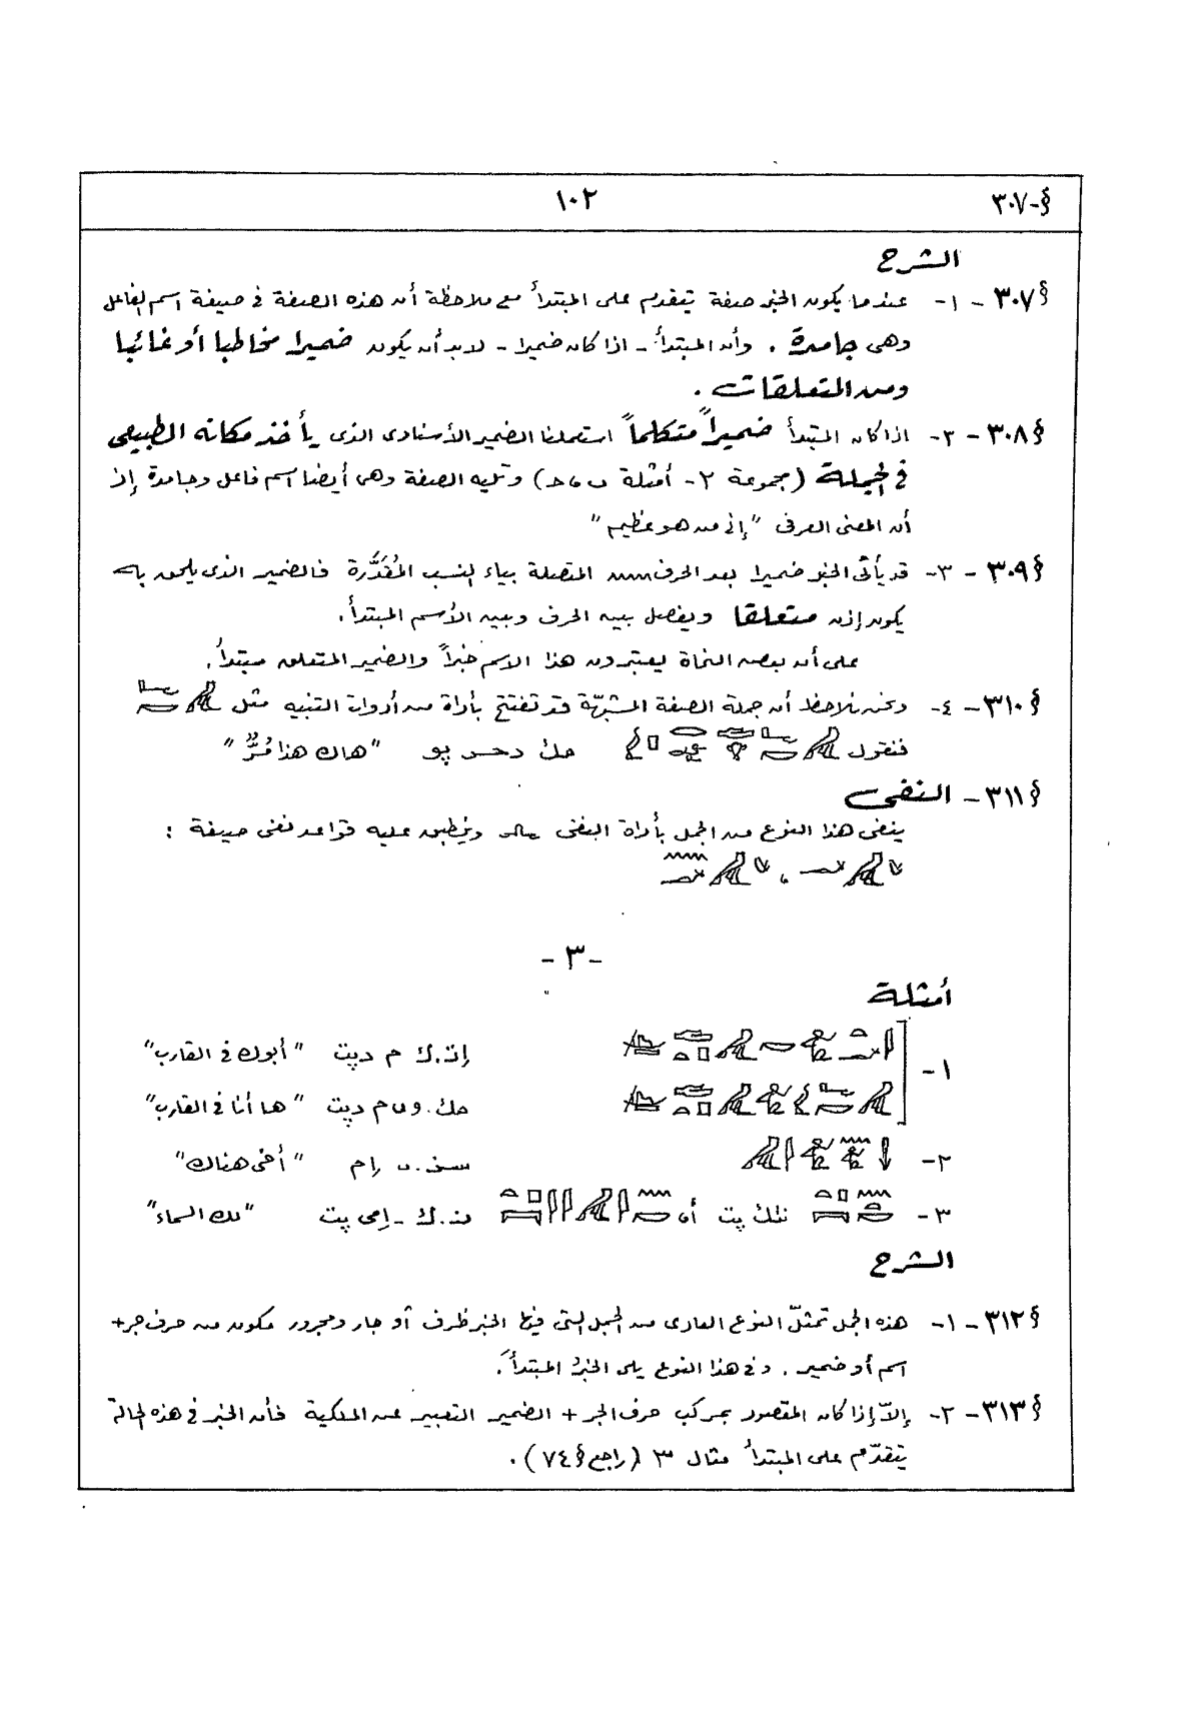 §-٣٠٧
١٠٢
الشرح
§٣٠٧ - ١- عندما يكون الخبر صفة يتقدم على المبتدأ مع ملاحظة أن هذه الصفة في صيغة اسم الفاعل
وهى جامدة . وأن المبتدأ - اذا كان ضميرا - لابد أن يكون ضميرا مخاطبا أو غائبا
ومن المتعلقات .
§٣٠٨ - ٢- اذا كان المبتدأ ضميراً متكلماً استعملنا الضمير الأسنادى الذى يأخذ مكانه الطبيعى
في الجملة (مجموعة ٢- أمثلة ب، حـ) وتليه الصفة وهى أيضا اسم فاعل وجامدة إذ
أن المعنى الحرفى "إنى من هو عظيم"
§٣٠٩ - ٣- قد يأتى الخبر ضميرا بعد الحرف 𓈖 المتصلة بياء النسب المُقَدَّرة فالضمير الذى يلحق به
يكون إذن متعلقا ويفصل بين الحرف وبين الأسم المبتدأ.
على أن بعض النحاة يعتبرون هذا الاسم خبراً والضمير المتعلق مبتدأ.
§٣١٠ - ٤- ونحن نلاحظ أن جملة الصفة المشبّهة قد تفتتح بأداة من أدوات التنبيه مثل
فنقول حك دحر پو "هاك هذا مُرٌّ"
§٣١١ - النفى
ينفى هذا النوع من الجمل بأداة النفى وينطبق عليه قواعد نفى صيغة :
-٣-
أمثلة
١- إت.ك م دپت "أبوك في القارب"
حك.وى م دپت "ها أنا في القارب"
٢- سن.ى إم "أخى هناك"
٣- نتك پت أو ن.ك -إمى پت "لك السماء"
الشرح
§٣١٢ - ١- هذه الجمل تمثلّ النوع العادى من الجمل التى فيها الخبر ظرف أو جار ومجرور مكون من حرف جر +
اسم أو ضمير . وفى هذا النوع يلى الخبرُ المبتدأَ.
§٣١٣ - ٢- إلاّ إذا كان المقصود بمركب حرف الجر + الضمير التعبير عن الملكية فأن الخبر في هذه الحالة
يتقدّم على المبتدأ مثال ٣ (راجع § ٧٤) .